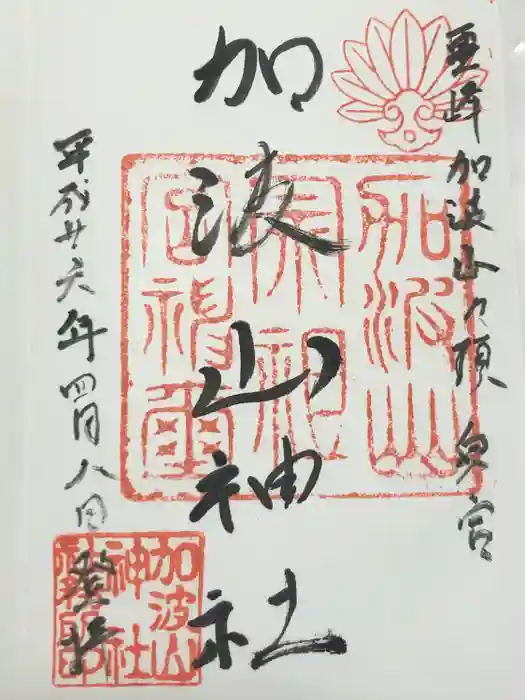 霊峰加波山の頂 奥宮
加波山神社
平成廿六年四月八日 登拝
加波山
神社